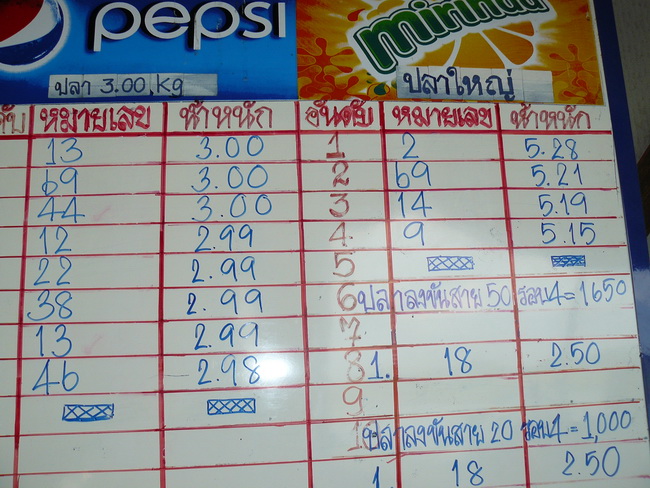 pepsi
mirinda
ปลา 3.00,Kg
ปลาใหญ่
หมายเลข น้ำหนัก อันดับ หมายเลข น้ำหนัก
13 3.00 1 2 5.28
69 3.00 2 69 5.21
44 3.00 3 14 5.19
12 2.99 4 9 5.15
22 2.99 5
38 2.99 6 ปลาลงขันสาย 50 รอบ4=1650
13 2.99 7
46 2.98 8 1. 18 2.50
9
ปลาลงขันสาย 20 รอบ4=1,000
1. 18 2.50